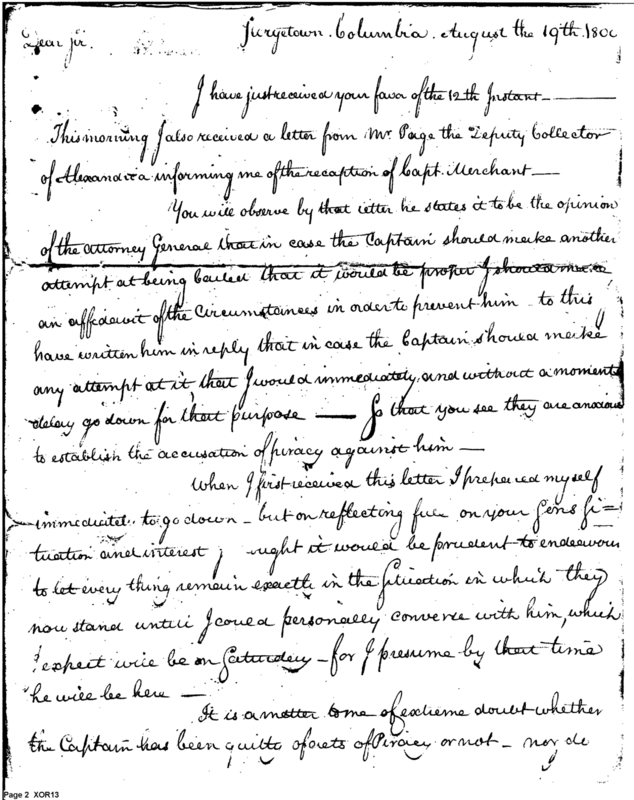 Jurgetown. Columbia. August the 19th. 180
Dear Sir.
I have just received your favor of the 12th Instant
This morning I also received a letter from Mr. Page the Deputy Collector
of Alexandria informing me of the recaption of Capt. Merchant
You will observe by that letter he states it to be the opinion
of the attorney General that in case the Captain should make another
attempt at being bailed that it would be proper I should make
an affedavit of the Circumstances in order to prevent him - to this
have written him in reply that in case the Captain should make
any attempt at it, that I would immediately and without a moments
delay go down for that purpose — So that you see they are anxious
to establish the accusation of piracy against him —
When I first received this letter I prepared myself
immediatel to go down - but on reflecting on your Sons Si=
tuation and interest ught it would be prudent to endeavour
to let every thing remain exactle in the Situation in which they
now stand until I could personally converse with him, which
expect will be on Saturday - for I presume by that time
he will be here —
It is a matter to me of extreme doubt whether
the Captain has been guilty of acts of Piracy or not - nor do
Page 2 XOR13